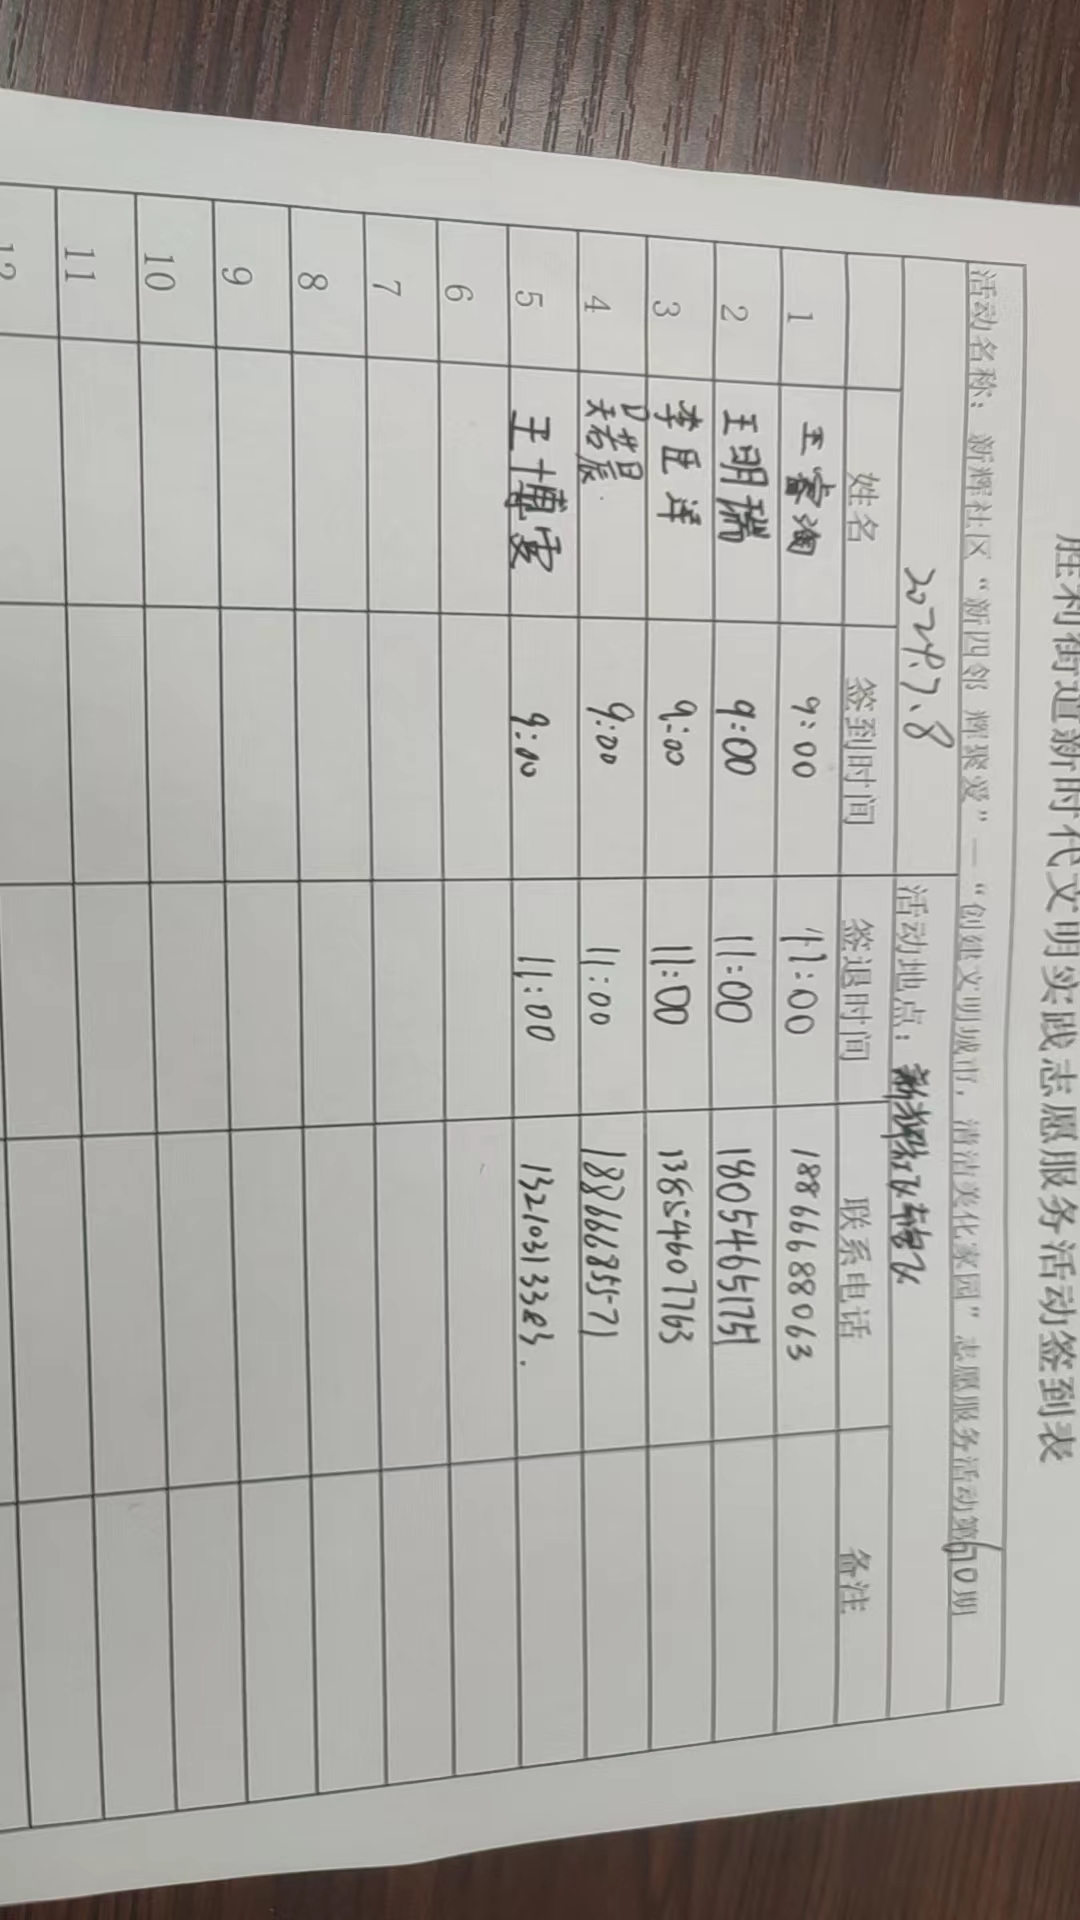 胜利街道新时代文明实践志愿服务活动签到表
活动名称：新辉社区“新四邻 辉聚爱”—“创建文明城市，清洁美化家园”志愿服务活动第610期
2024.7.8 活动地点：新辉社区
姓名 签到时间 签退时间 联系电话 备注
1 王 9:00 11:00 18866688063
2 王明瑞 9:00 11:00 18054651751
3 李臣洋 9:00 11:00 13854607763
4 9:00 11:00 18866685571
5 王博雯 9:00 11:00 13210313383.
6
7
8
9
10
11
12